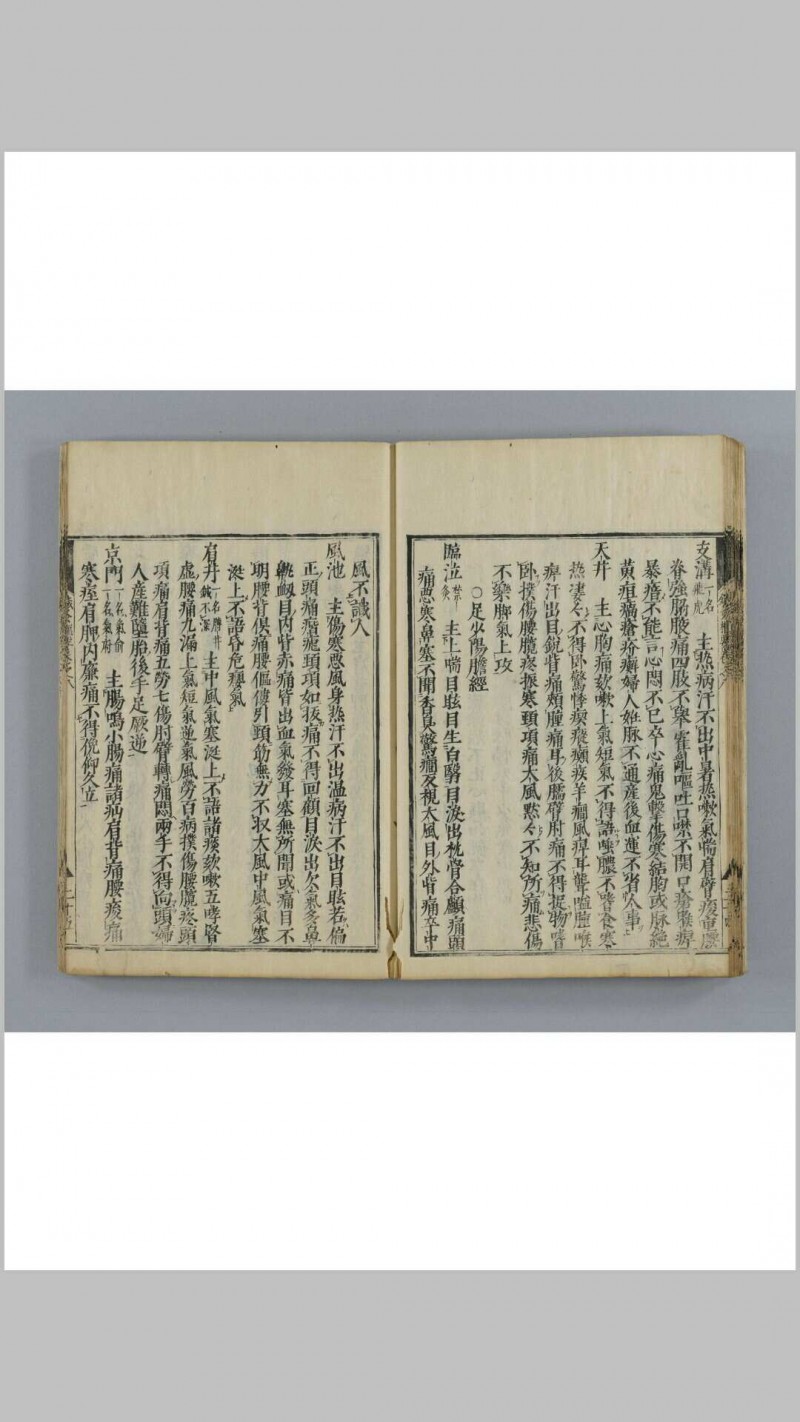 支溝一名飛虎 主熱病汗不出中暑熱嗽氣喘肩臂痠重腰
脊強脇腋痛四肢不舉霍亂嘔吐口噤不開口瘡喉痺
暴瘖不能言心悶不已卒心痛鬼擊傷寒結胸或脉絶
黄疸瘑瘡疥癬婦人姙脉不通産後血運不省人事
天井 主心胸痛欬嗽上氣短氣不得語唾膿不嗜食寒
熱凄々不得卧驚悸瘈瘲癲疾羊癇風痺耳聾嗌腫喉
痺汗出目銳眥痛頰腫痛耳後臑臂肘痛不得捉物嗜
卧撲傷腰髖疼振寒頸項痛大風黙々不知所痛悲傷
不樂脚氣上攻
○足少陽膽經
臨泣禁灸 主上喘目眩目生白翳目淚出枕骨合顱痛頭
痛惡寒鼻塞不聞香臭驚癇反視大風目外眥痛卒中
風不識人
風池 主傷寒惡風身熱汗不出温病汗不出目眩苦偏
正頭痛瘧瘧頸項如拔痛不得回顧目淚出欠氣多鼻
鼽衂目内眥赤痛皆出血氣發耳塞無所聞或痛目不
明腰背俱痛腰傴僂引頸筋無力不収大風中風氣塞
涎上不語昏危癭氣
肩井一名膊井鍼不深 主中風氣塞涎上不語諸痰欬嗽五哮腎
虛腰痛九漏上氣短氣逆氣風勞百病撲傷腰髖疼頭
項痛肩背痛五勞七傷肘臂轉痛悶兩手不得向頭婦
人産難墮胎後手足厥逆
京門一名氣俞一名氣府 主腸鳴小腸痛諸病肩背痛腰痠痛
寒痙肩胛内廉痛不得俛仰久立